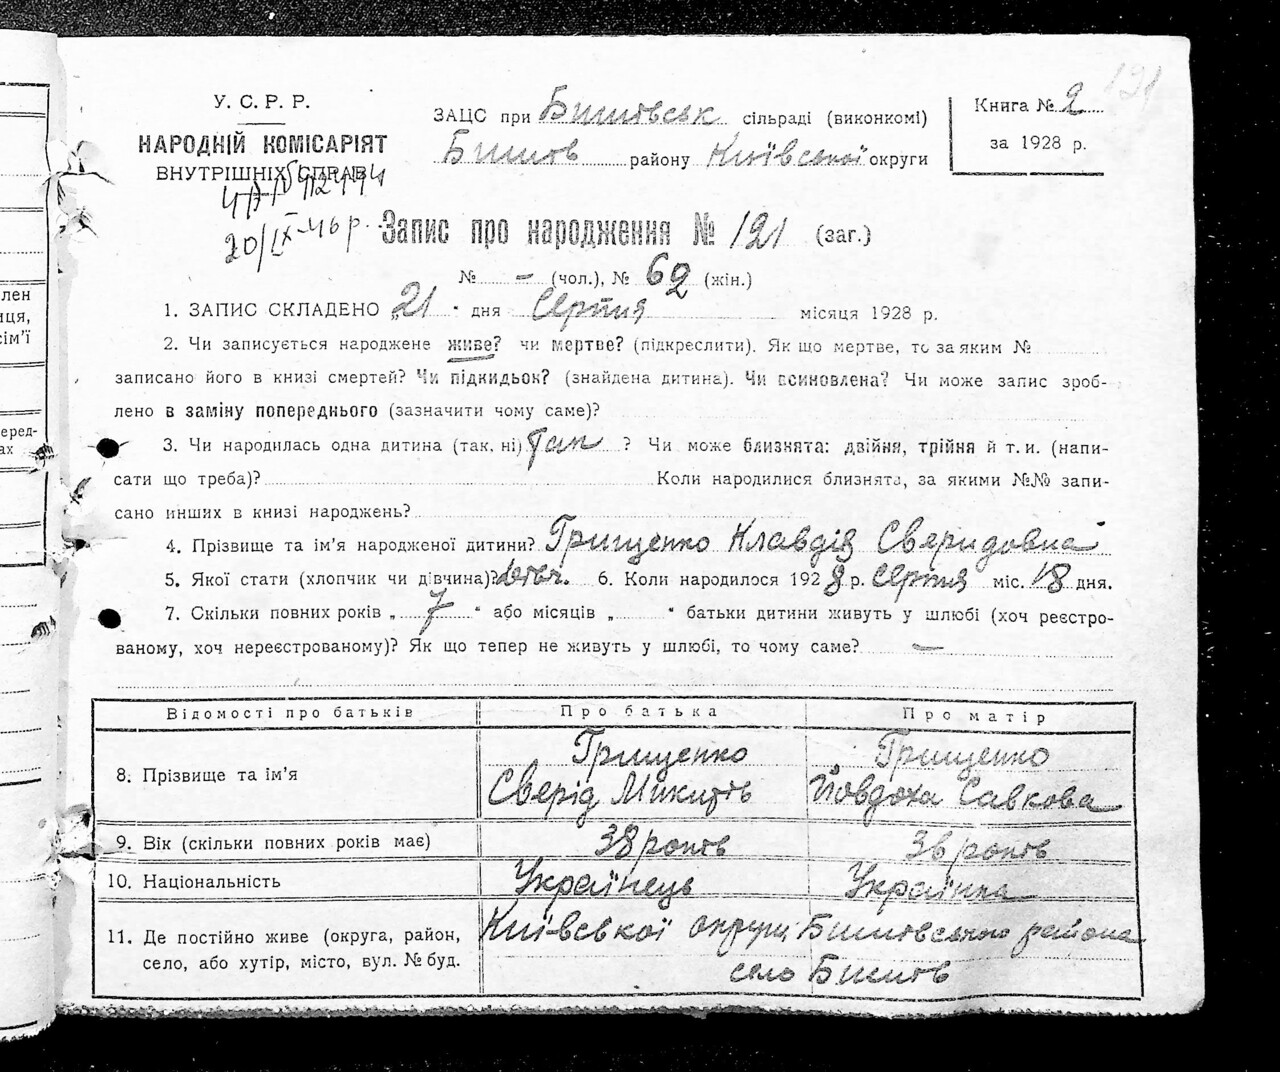 191
У. С. Р. Р.
НАРОДНІЙ КОМІСАРІЯТ
ВНУТРІШНІХ СПРАВ
20/IX-46 р.
ЗАЦС при Бишівськ сільраді (виконкомі)
Бишів району Київської округи
Книга № 2
за 1928 р.
Запис про народження № 121 (заг.)
№ – (чол.), № 62 (жін.)
1. ЗАПИС СКЛАДЕНО „21" дня Серпня місяця 1928 р.
2. Чи записується народжене живе? чи мертве? (підкреслити). Як що мертве, то за яким №
записано його в книзі смертей? Чи підкидьок? (знайдена дитина). Чи всиновлена? Чи може запис зроб-
лено в заміну попереднього (зазначити чому саме)?
3. Чи народилась одна дитина (так, ні) Так ? Чи може близнята: двійня, трійня й т. и. (напи-
сати що треба)? Коли народилися близнята, за якими №№ запи-
сано инших в книзі народжень?
4. Прізвище та ім'я народженої дитини? Грищенко Клавдія Сверидовна
5. Якої стати (хлопчик чи дівчина)? 6. Коли народилося 1928 р. Серпня міс. 18 дня.
7. Скільки повних років „ 7 " або місяців „ " батьки дитини живуть у шлюбі (хоч реєстро-
ваному, хоч нереєстрованому)? Як що тепер не живуть у шлюбі, то чому саме? —
Відомості про батьків Про батька Про матір
8. Прізвище та ім'я Грищенко Сверід Микитів Грищенко Йовдоха Савкова
9. Вік (скільки повних років має) 38 років 36 років
10. Національність Українець Українка
11. Де постійно живе (округа, район,
село, або хутір, місто, вул. № буд.
Київської округи Бишівського района
село Бишів
лен
иця,
сім'ї
еред-
ах